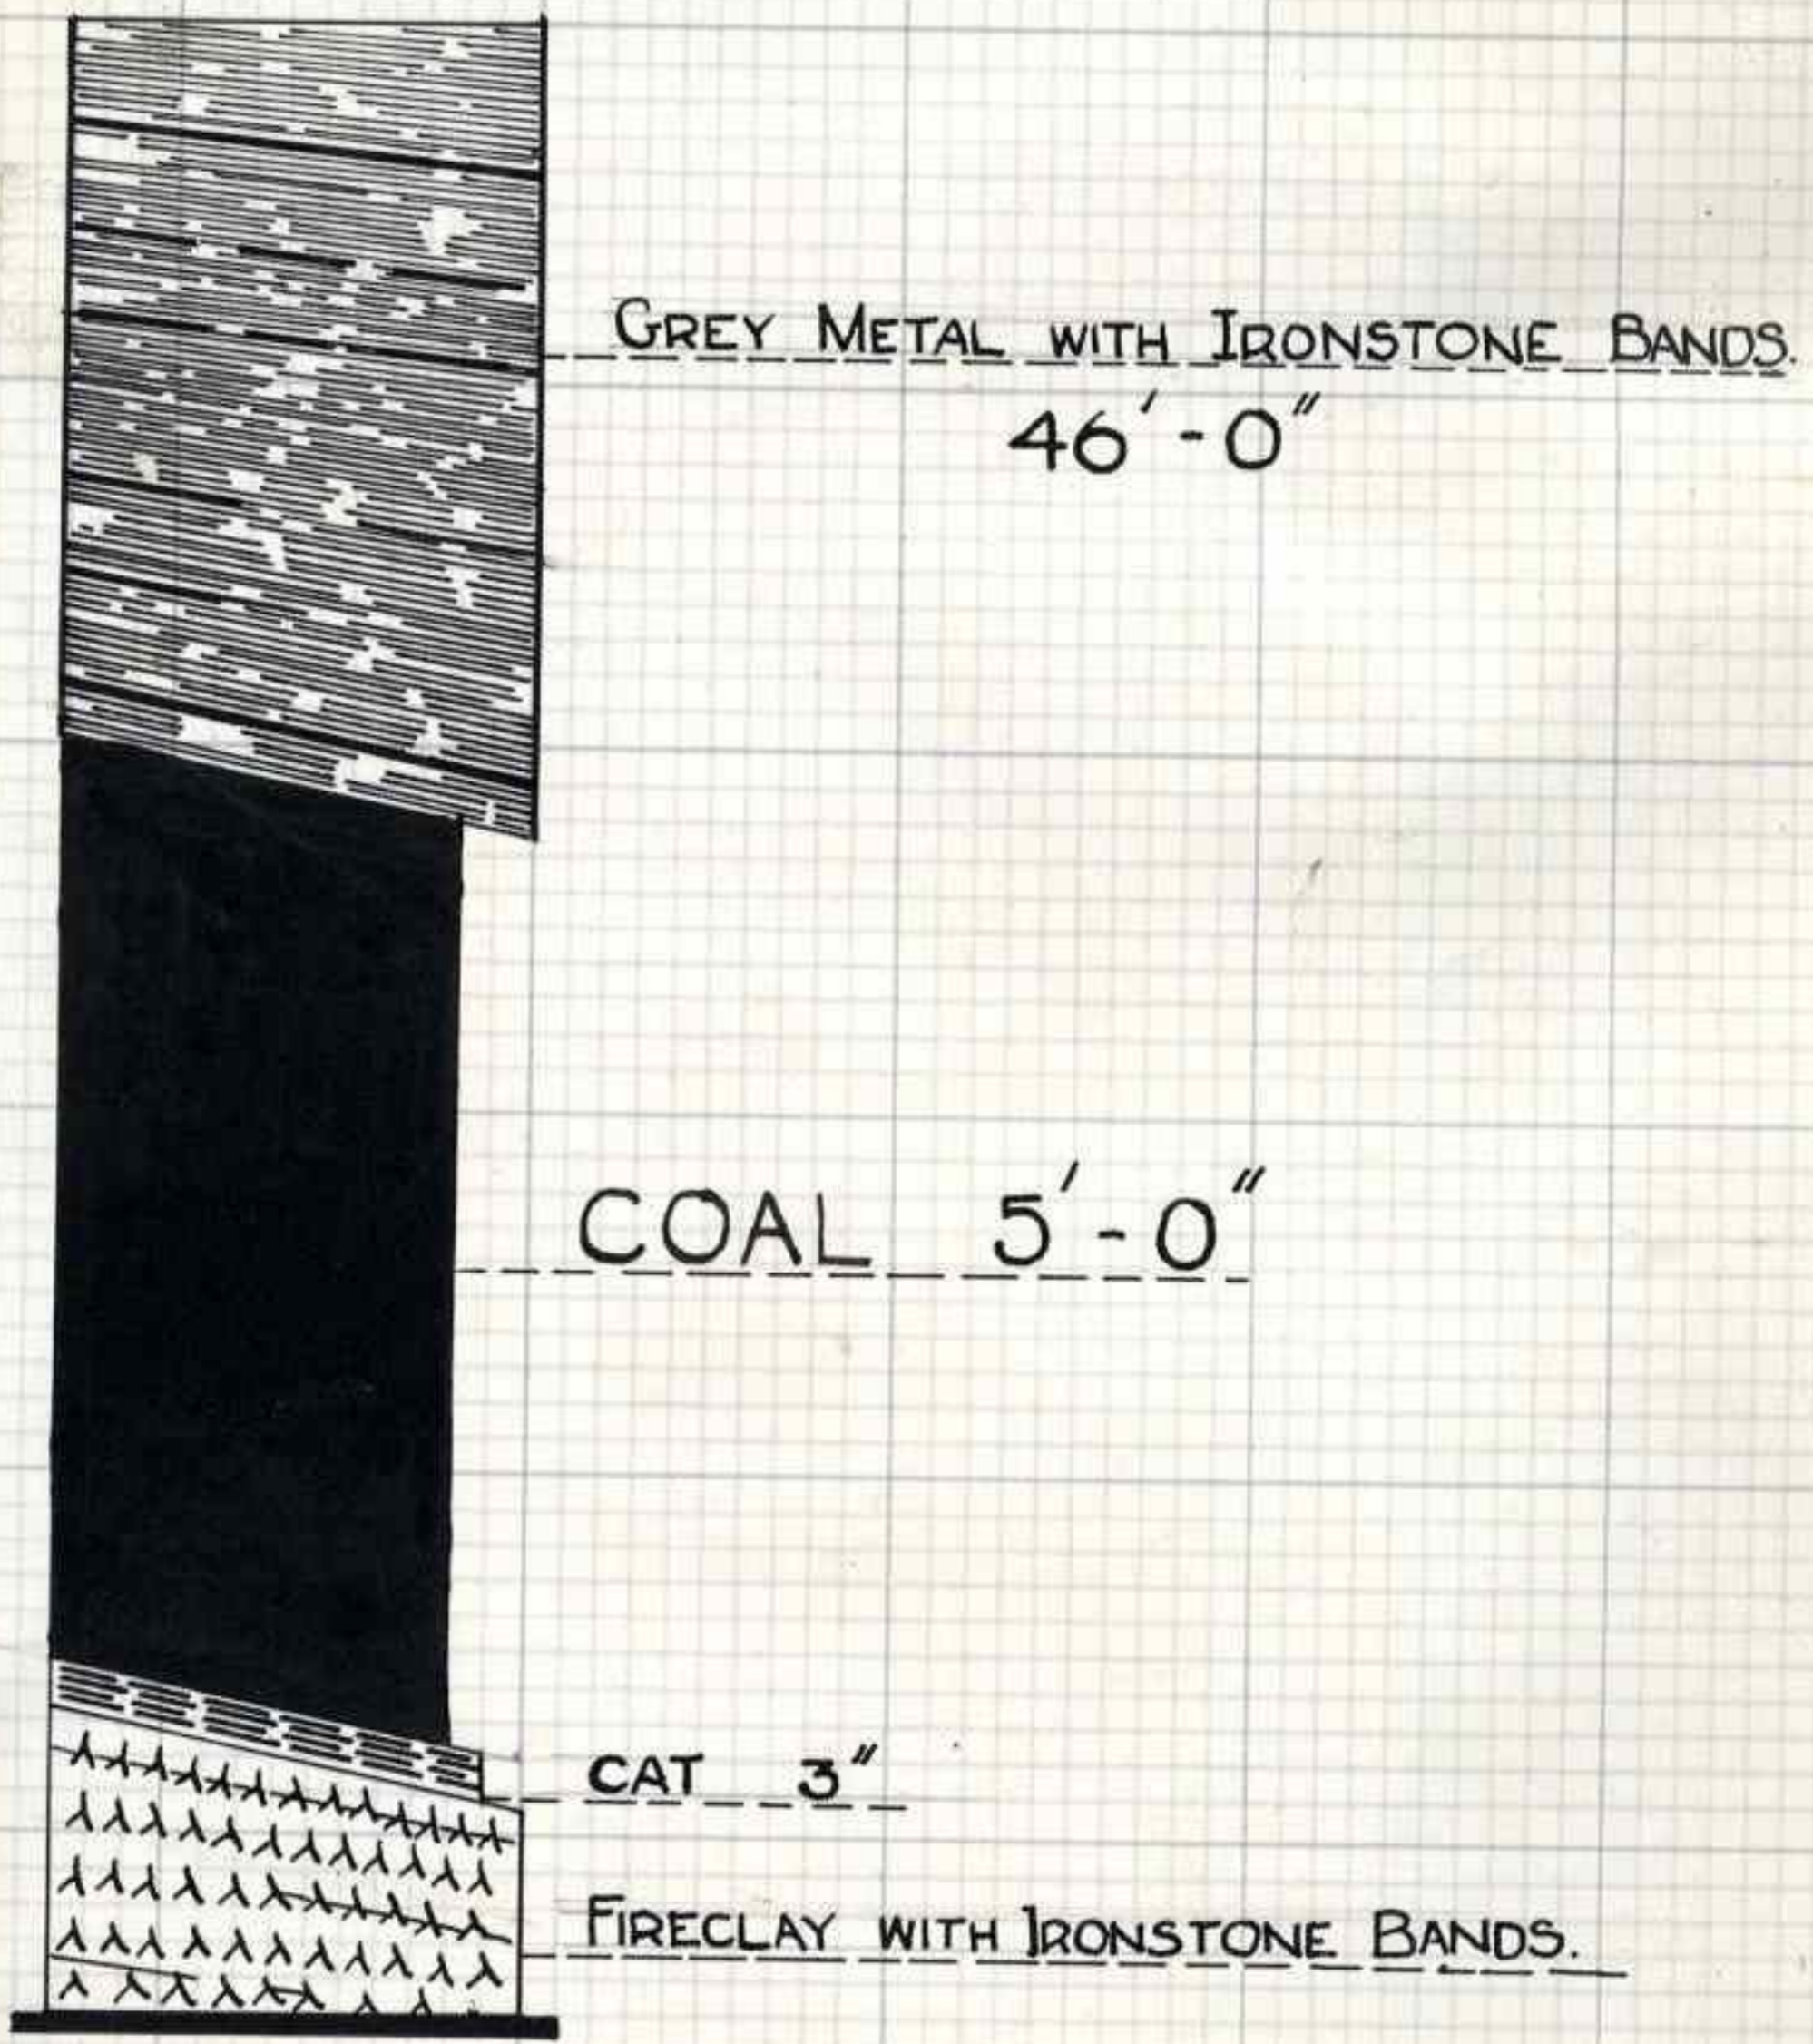 GREY METAL WITH IRONSTONE BANDS.
46'-0"
COAL 5'-0"
CAT 3"
FIRECLAY WITH IRONSTONE BANDS.